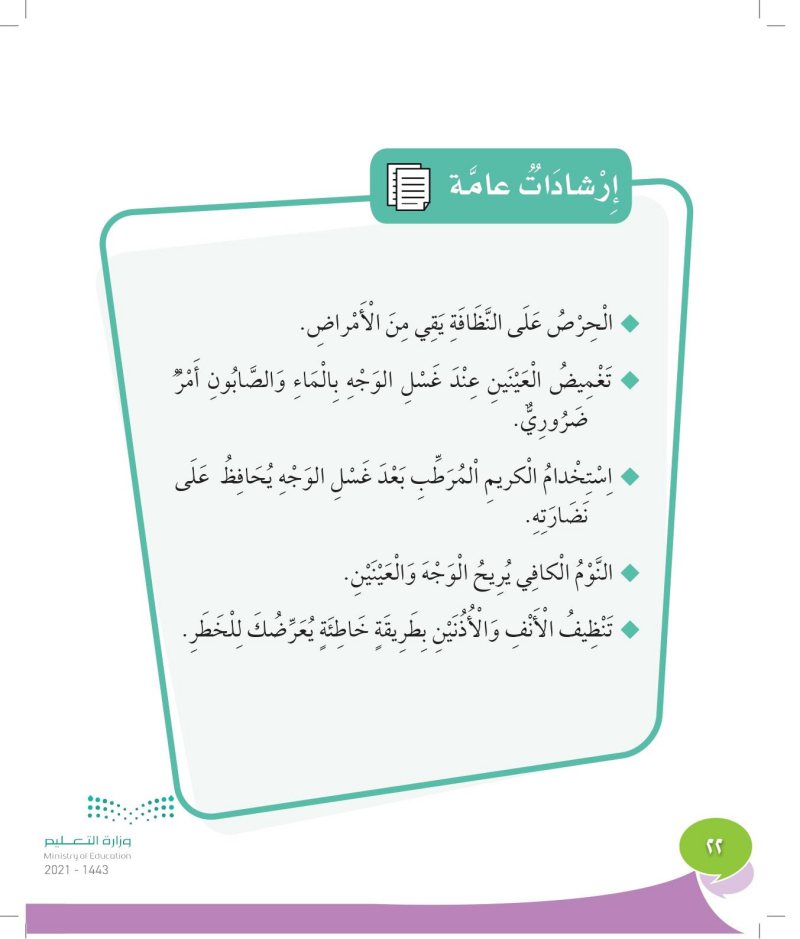 إِرْشادَاتٌ عامَّة
الْحِرْصُ عَلَى النَّظَافَةِ يَقِي مِنَ الْأَمْراضِ.
تَغْمِيضُ الْعَيْنَينِ عِنْدَ غَسْلِ الوَجْهِ بِالْمَاءِ وَالصَّابُونِ أَمْرٌ
ضَرُورِيٌّ.
اِسْتِخْدامُ الْكريمِ اْلمُرَطِّبِ بَعْدَ غَسْلِ الوَجْهِ يُحَافِظُ عَلَى
نَضَارَتِهِ.
النَّوْمُ الْكافِي يُرِيحُ الْوَجْهَ وَالْعَيْنَيْنِ.
تَنْظِيفُ الْأَنْفِ وَالْأُذُنَيْنِ بِطَرِيقَةٍ خَاطِئَةٍ يُعَرِّضُكَ لِلْخَطَرِ.
وزارة التـعـليم
Ministry of Education
2021 - 1443
٢٢